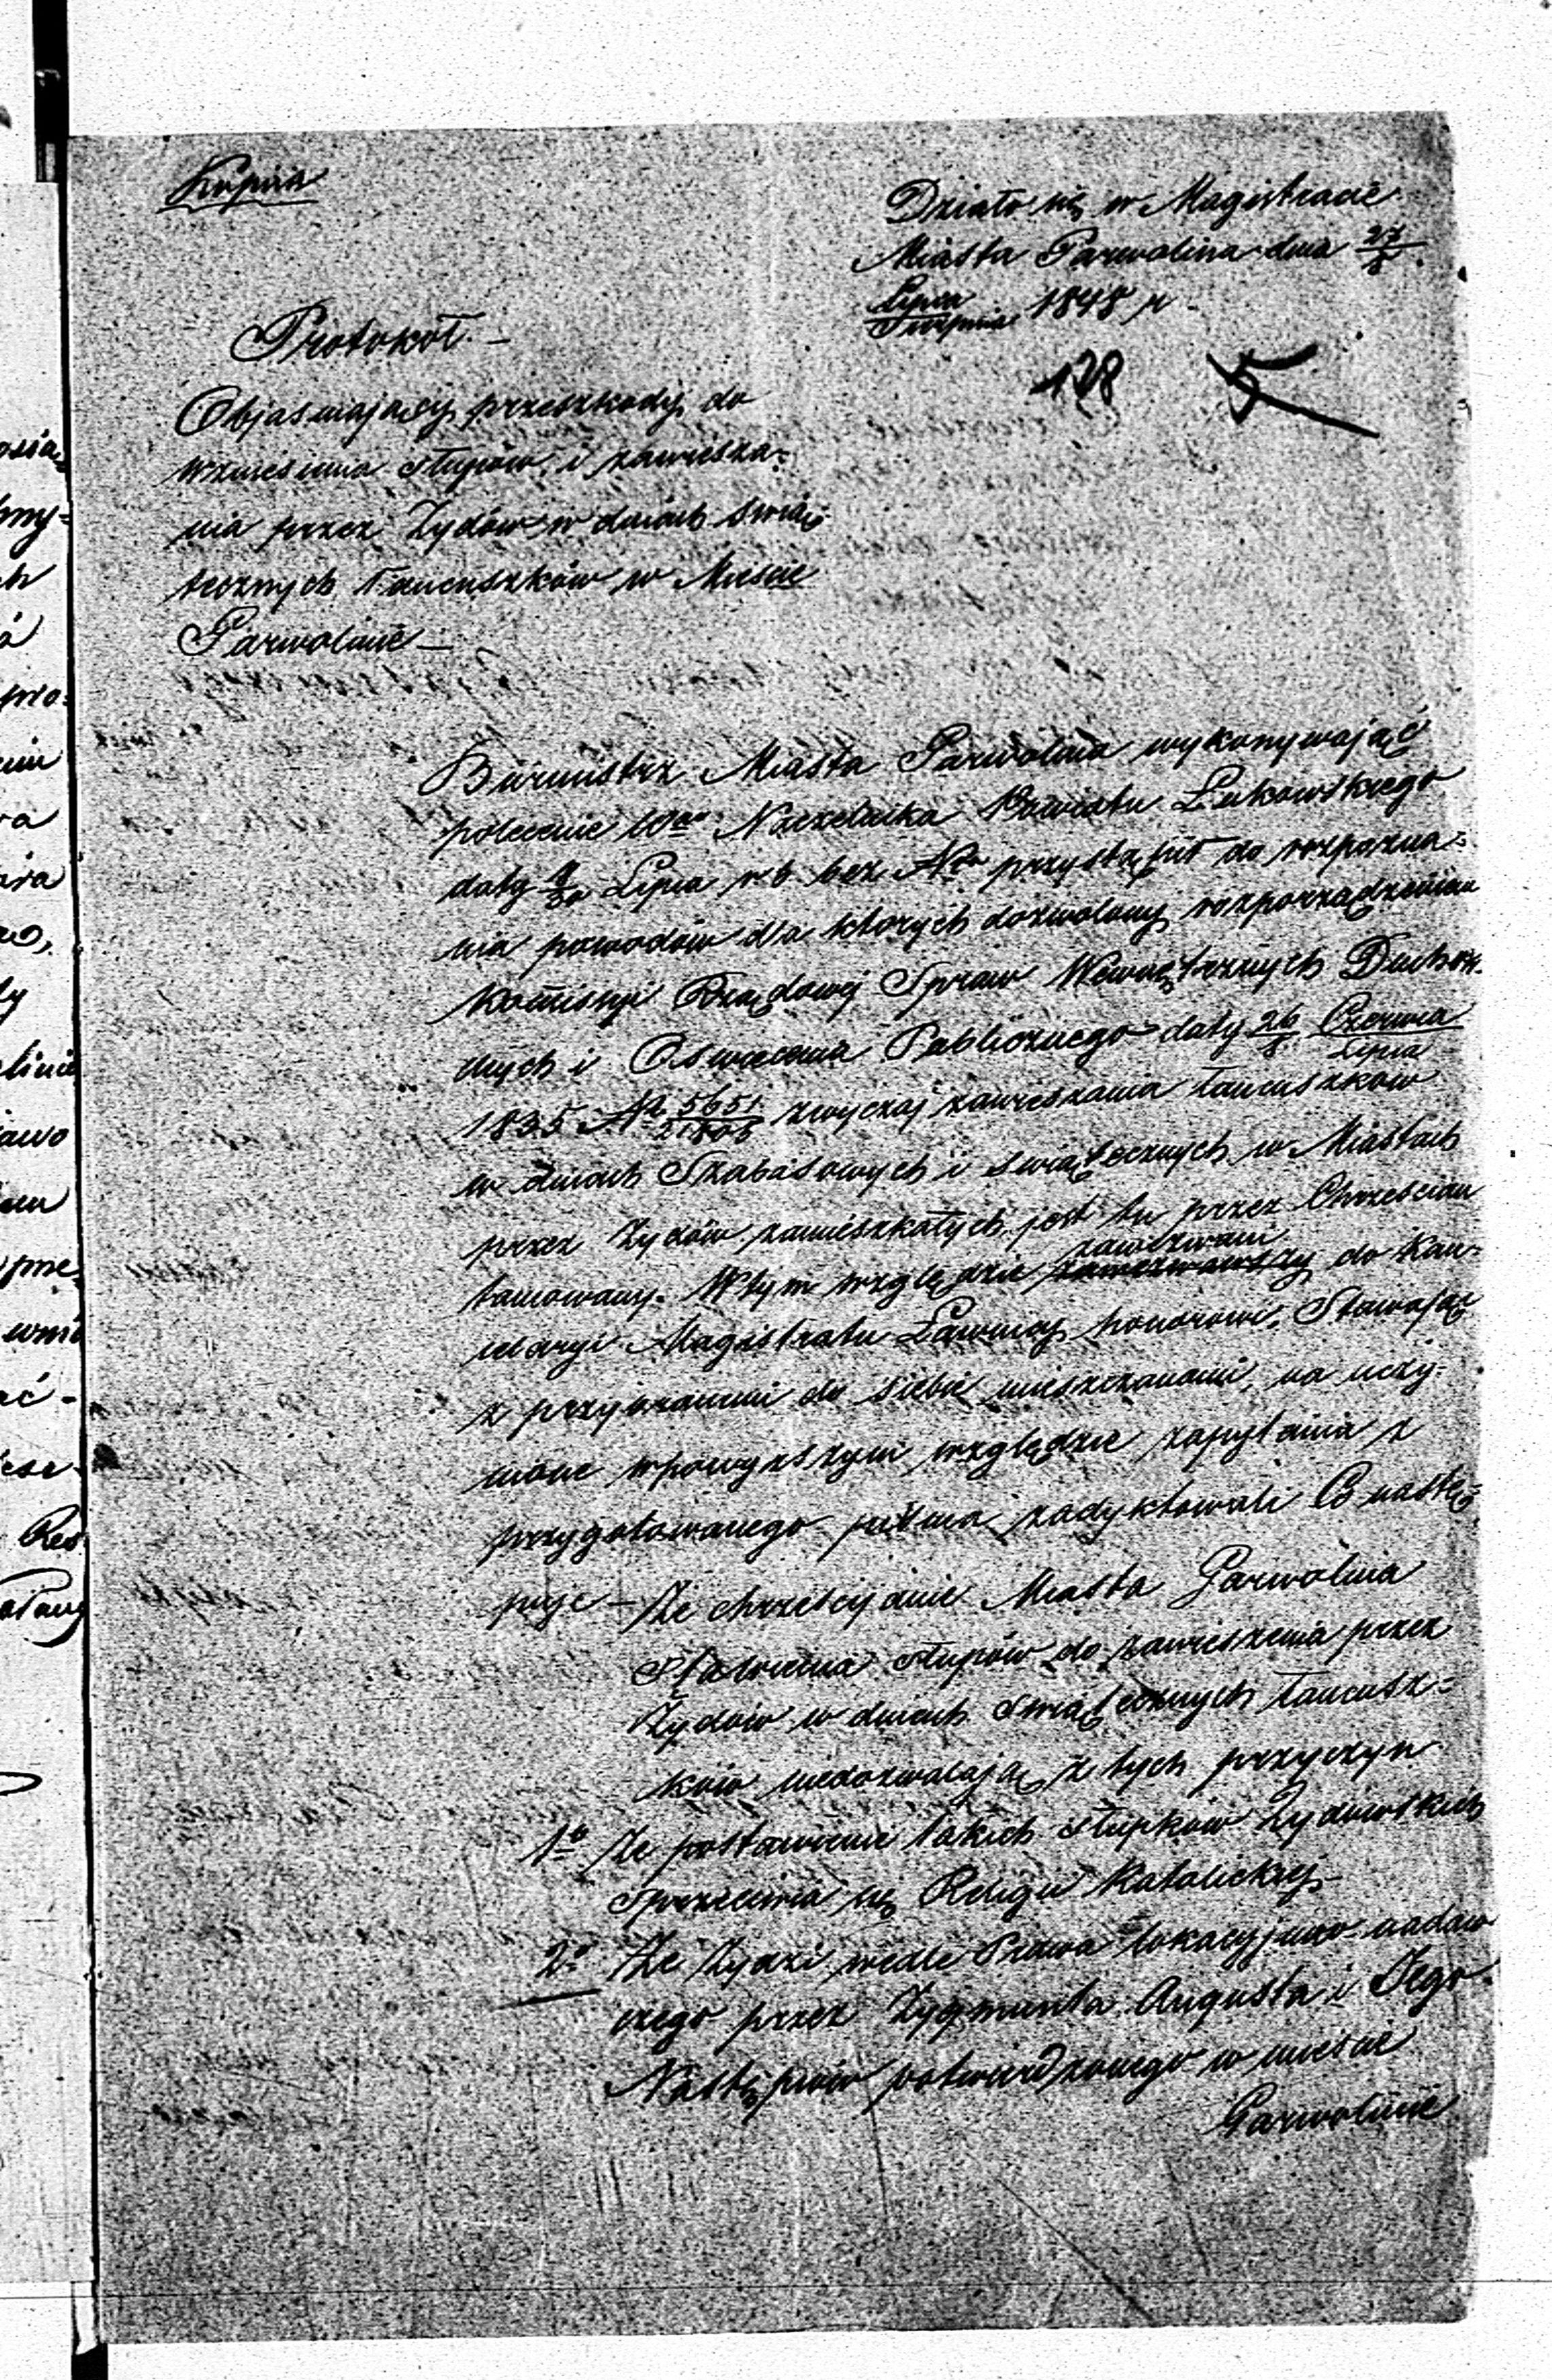 Kopia
Działo się w Magistracie
Miasta Garwolina dnia 27/8
Lipca/Sierpnia 1848 r
Protokoł. –
128 5
Objasniający przeszkody do
wzniesienia słupów i zawiesza=
nia przez Żydów w dniach świą=
tecznych łancuszków w Miescie
Garwolinie –
Burmistrz Miasta Garwolina wykonywając
polecenie Wgo Naczelnika Powiatu Łukowskiego
daty Lipca r b bez Nru przystąpił do rozpozna=
nia powodów dla ktorych dozwolony rozporządzeniem
Kommissyi Rządowej Spraw Wewnętrznych Duchow
nych i Oswiecenia Publicznego daty 26/8 Czerwca/Lipca
1835 No 5651/21808 zwyczaj zawieszania łancuszków
w dniach Szabasowych i swiątecznych w Miastach
przez Żydów zamieszkałych, jest tu przez Chrzescian
tamowany. W tym względzie zawezwani do Kan=
celaryi Magistratu Ławnicy honorowi, Stawając
z przybranemi do siebie mieszczanami, na uczy=
nione w powyzszym względzie zapytania z
przygotowanego pisma zadyktowali co nastę=
puje – Ze chrzescijanie Miasta Garwolina
Stawienia słupów do zawieszenia przez
Żydów w dniach Swiątecznych łancusz=
ków niedozwalają z tych przyczyn
1o Ze postawienie takich słupków Żydowskich
Sprzeciwia się Religii Katolickiej –
2o Ze Żydzi wedle Prawa lokacyjnego nadaw
czego przez Zygmunta Augusta i Jego
Następców potwierdzonego w miescie
Garwolinie